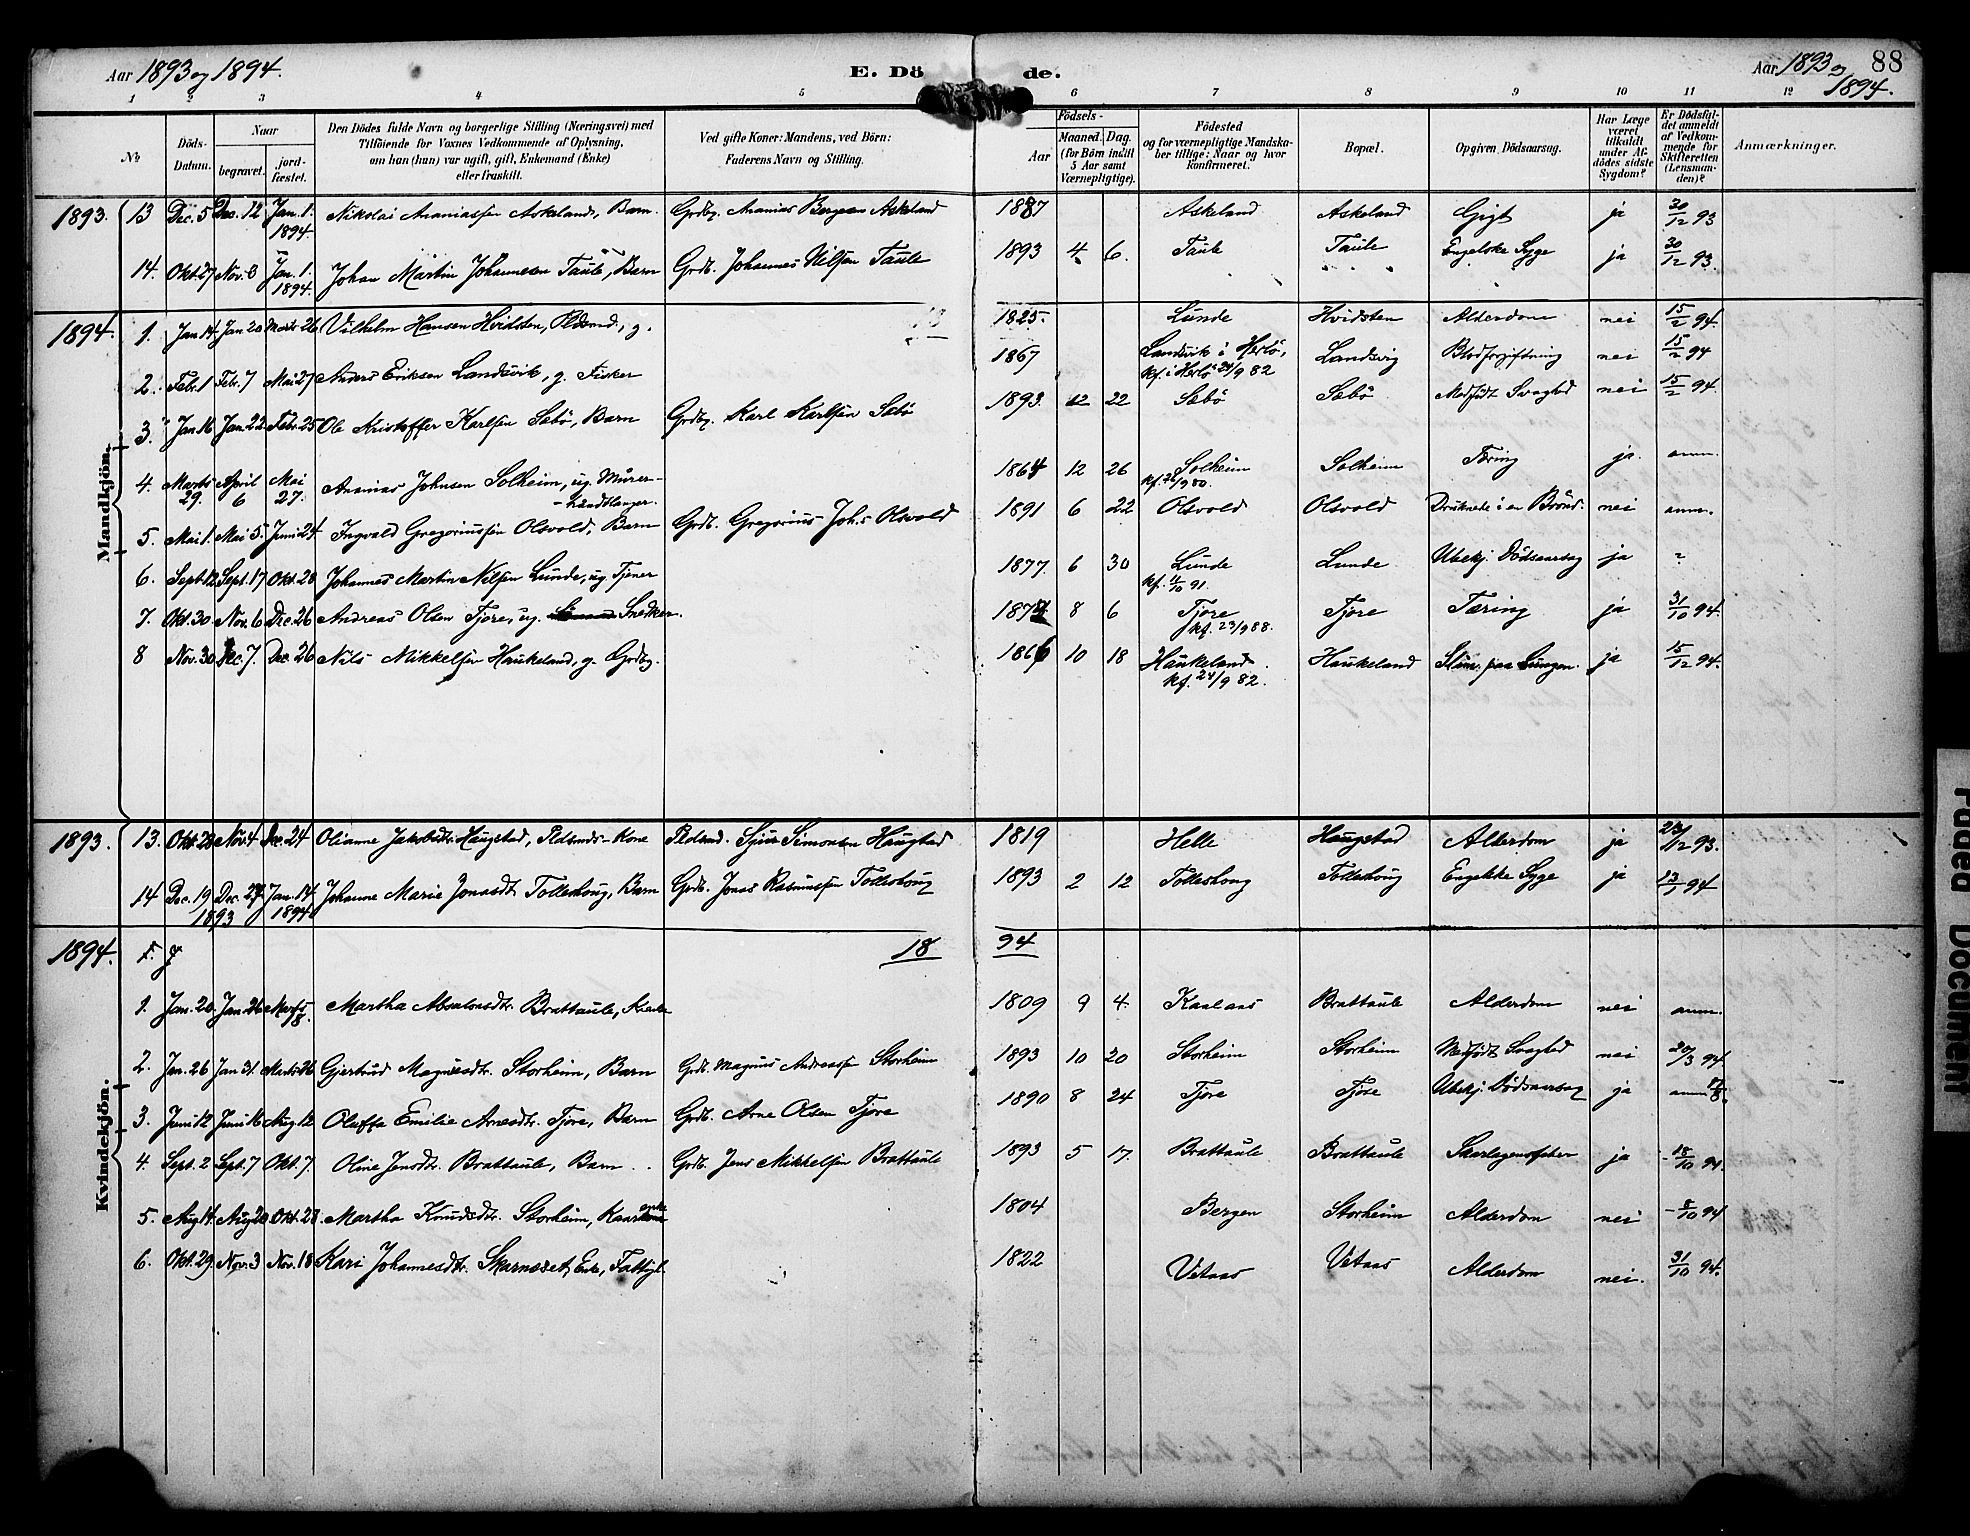 Aar 1893 og 1894. E. Dö de. Aar 1893 og 1894. 88
1 2 3 4 5 6 7 8 9 10 11 12
№ Döds-Datum. Naar begravet. jord-fæstet. Den Dödes fulde Navn og borgerlige Stilling (Næringsvei) med Tilföiende for Voxnes Vedkommende af Oplysning, om han (hun) var ugift, gift, Enkemand (Enke) eller fraskilt. Ved gifte Koner: Mandens, ved Börn: Faderens Navn og Stilling. Födsels- Aar Maaned. Dag. (for Börn indtil 5 Aar samt Værnepligtige). Födested og for værnepligtige Mandska-ber tillige: Naar og hvor konfirmeret. Bopæl. Opgiven Dödsaarsag. Har Læge været tilkaldt under Af-dödes sidste Sygdom? Er Dödsfal-det anmeldt af Vedkom-mende for Skifteretten (Lensman-den)? Anmærkninger.
Mandkjön.
1893. 13 Dec. 5 Dec. 12 Jan. 1. 1894. Nikolai Ananiassen Askeland, Barn. Grdbg. Ananias Bergesen Askeland 1887 Askeland Askeland Gigt ja 30/12 93
14. Okt. 27 Nov. 3 Jan. 1. 1894. Johan Martin Johannesen Taule, Barn Grdb. Johannes Nilsen Taule 1893 4 6. Taule Taule Engelske Syge ja 30/12 93.
1894. 1. Jan. 14. Jan. 20 Marts 26 Vilhelm Hansen Hvidsten, Pldsmd., g. 1825. Lunde Hvidsten Alderdom nei 15/2 94.
2. Febr. 1 Febr. 7 Mai 27 Anders Eriksen Landsvik, g. Fisker 1867 Landsvik i Herlö, kf. i Herlö 24/9 82 Landsvig Blodforgiftning nei 15/2 94
3. Jan. 16 Jan. 22 Febr. 25 Ole Kristoffer Karlsen Sæbö, Barn Grdbg. Karl Karlsen Sæbö 1893. 12 22 Sæbö Sæbö Medfödt Svaghed nei 15/2 94.
4. Marts 29. April 6 Mai 27. Ananias Johnsen Solheim, ug. Murer-
-haandtlanger. 1864 12 26 Solheim kf. 26/9 80. Solheim Tæring ja. anm.
5. Mai 1. Mai 5. Juni 24 Ingvald Gregoriussen Olsvold, Barn Grdb. Gregorius Joh.s Olsvold 1891 6 22 Olsvold Olsvold Druknede i en Brönd. nei anm.
6. Sept. 12 Sept. 17 Okt. 28 Johannes Martin Nilsen Lunde, ug. Tjener 1877. 6 30 Lunde kf. 11/10 91. Lunde Ubekj. Dödsaarsag ja ?
7. Okt. 30. Nov. 6 Dec. 26 Andreas Olsen Tjore, ug. Snedker. 8 6 Tjore kf. 23/9 88. Tjore Tæring ja 31/10 94.
8 Nov. 30 Dec. 7. Dec. 26 Nils Mikkelsen Haukeland, g. Grdbg. 1866 10 18 Haukeland kf. 24/9 82. Haukeland Slim. paa Lungen. ja 15/12 94.
Kvindekjön.
1893. 13. Okt. 28 Nov. 4 Dec. 24 Olianne Jakobsdtr. Haugstad, Pldsmds-Kone Pldsmd. Sjur Simonsen Haugstad 1819 Helle Haugstad Alderdom ja 23/12 93.
14 Dec. 19 1893 Dec. 27 Jan. 14. 1894. Johanne Marie Jonasdt. Tolleshoug, Barn Grdb. Jonas Rasmussen Tolleshoug 1893 2 12 Tolleshoug Tolleshoug Engelske Syge ja 13/1 94
1894. 18 94
1. Jan. 20. Jan. 26 Marts 18. Martha Absalonsdtr. Brattaule, 1809 9 4. Kaalaas Brattaule Alderdom nei anm.
2. Jan. 26 Jan 31. Marts 26 Gjertrud Magnusdtr. Storheim, Barn Grdb. Magnus Andreassen Storheim 1893 10 20 Storheim Storheim Medfödt Svaghed nei 20/3 94
3. Juni 12 Juni 16 Aug. 12 Oluffa Emilie Arnesdtr. Tjore, Barn Grdb. Arne Olsen Tjore 1890 8 24 Tjore Tjore Ubekj. Dödsaarsag ja anm.
4. Sept. 2 Sept. 7 Okt. 7. Oline Jensdtr. Brattaule, Barn Grdb. Jens Mikkelsen Brattaule 1893 5 17. Brattaule Brattaule Skarlagensfeber ja - 18/10 94.
5. Aug 14. Aug 20 Okt. 28. Martha Knudsdtr. Storheim, 1804 Bergen Storheim Alderdom nei - 8/10 94
6. Okt. 29. Nov. 3 Nov. 18 Kari Johannesdtr. Skarnæset, Enke, Fattigl. 1822 Vetaas Vetaas Alderdom nei. 31/10 94.
Faded Document